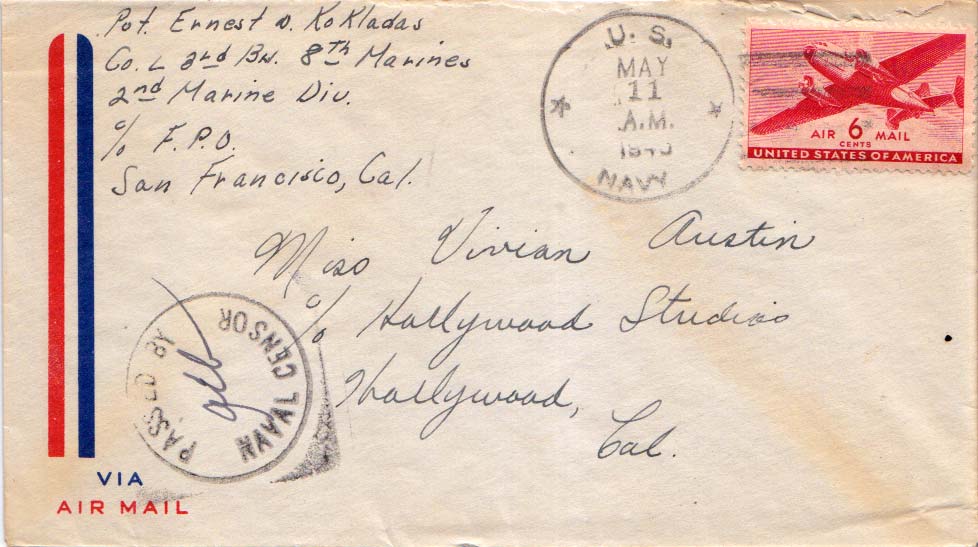 Pvt. Ernest D. Kokladas
Co. L 3rd Bn. 8th Marines
2nd Marine Div.
c/o F.P.O.
San Francisco, Cal.
U. S.
MAY
11
A.M.
NAVY
AIR 6 MAIL
CENTS
UNITED STATES OF AMERICA
Miss Vivian Austin
c/o Hollywood Studios
Hollywood,
Cal.
PASSED BY
NAVAL CENSOR
VIA
AIR MAIL